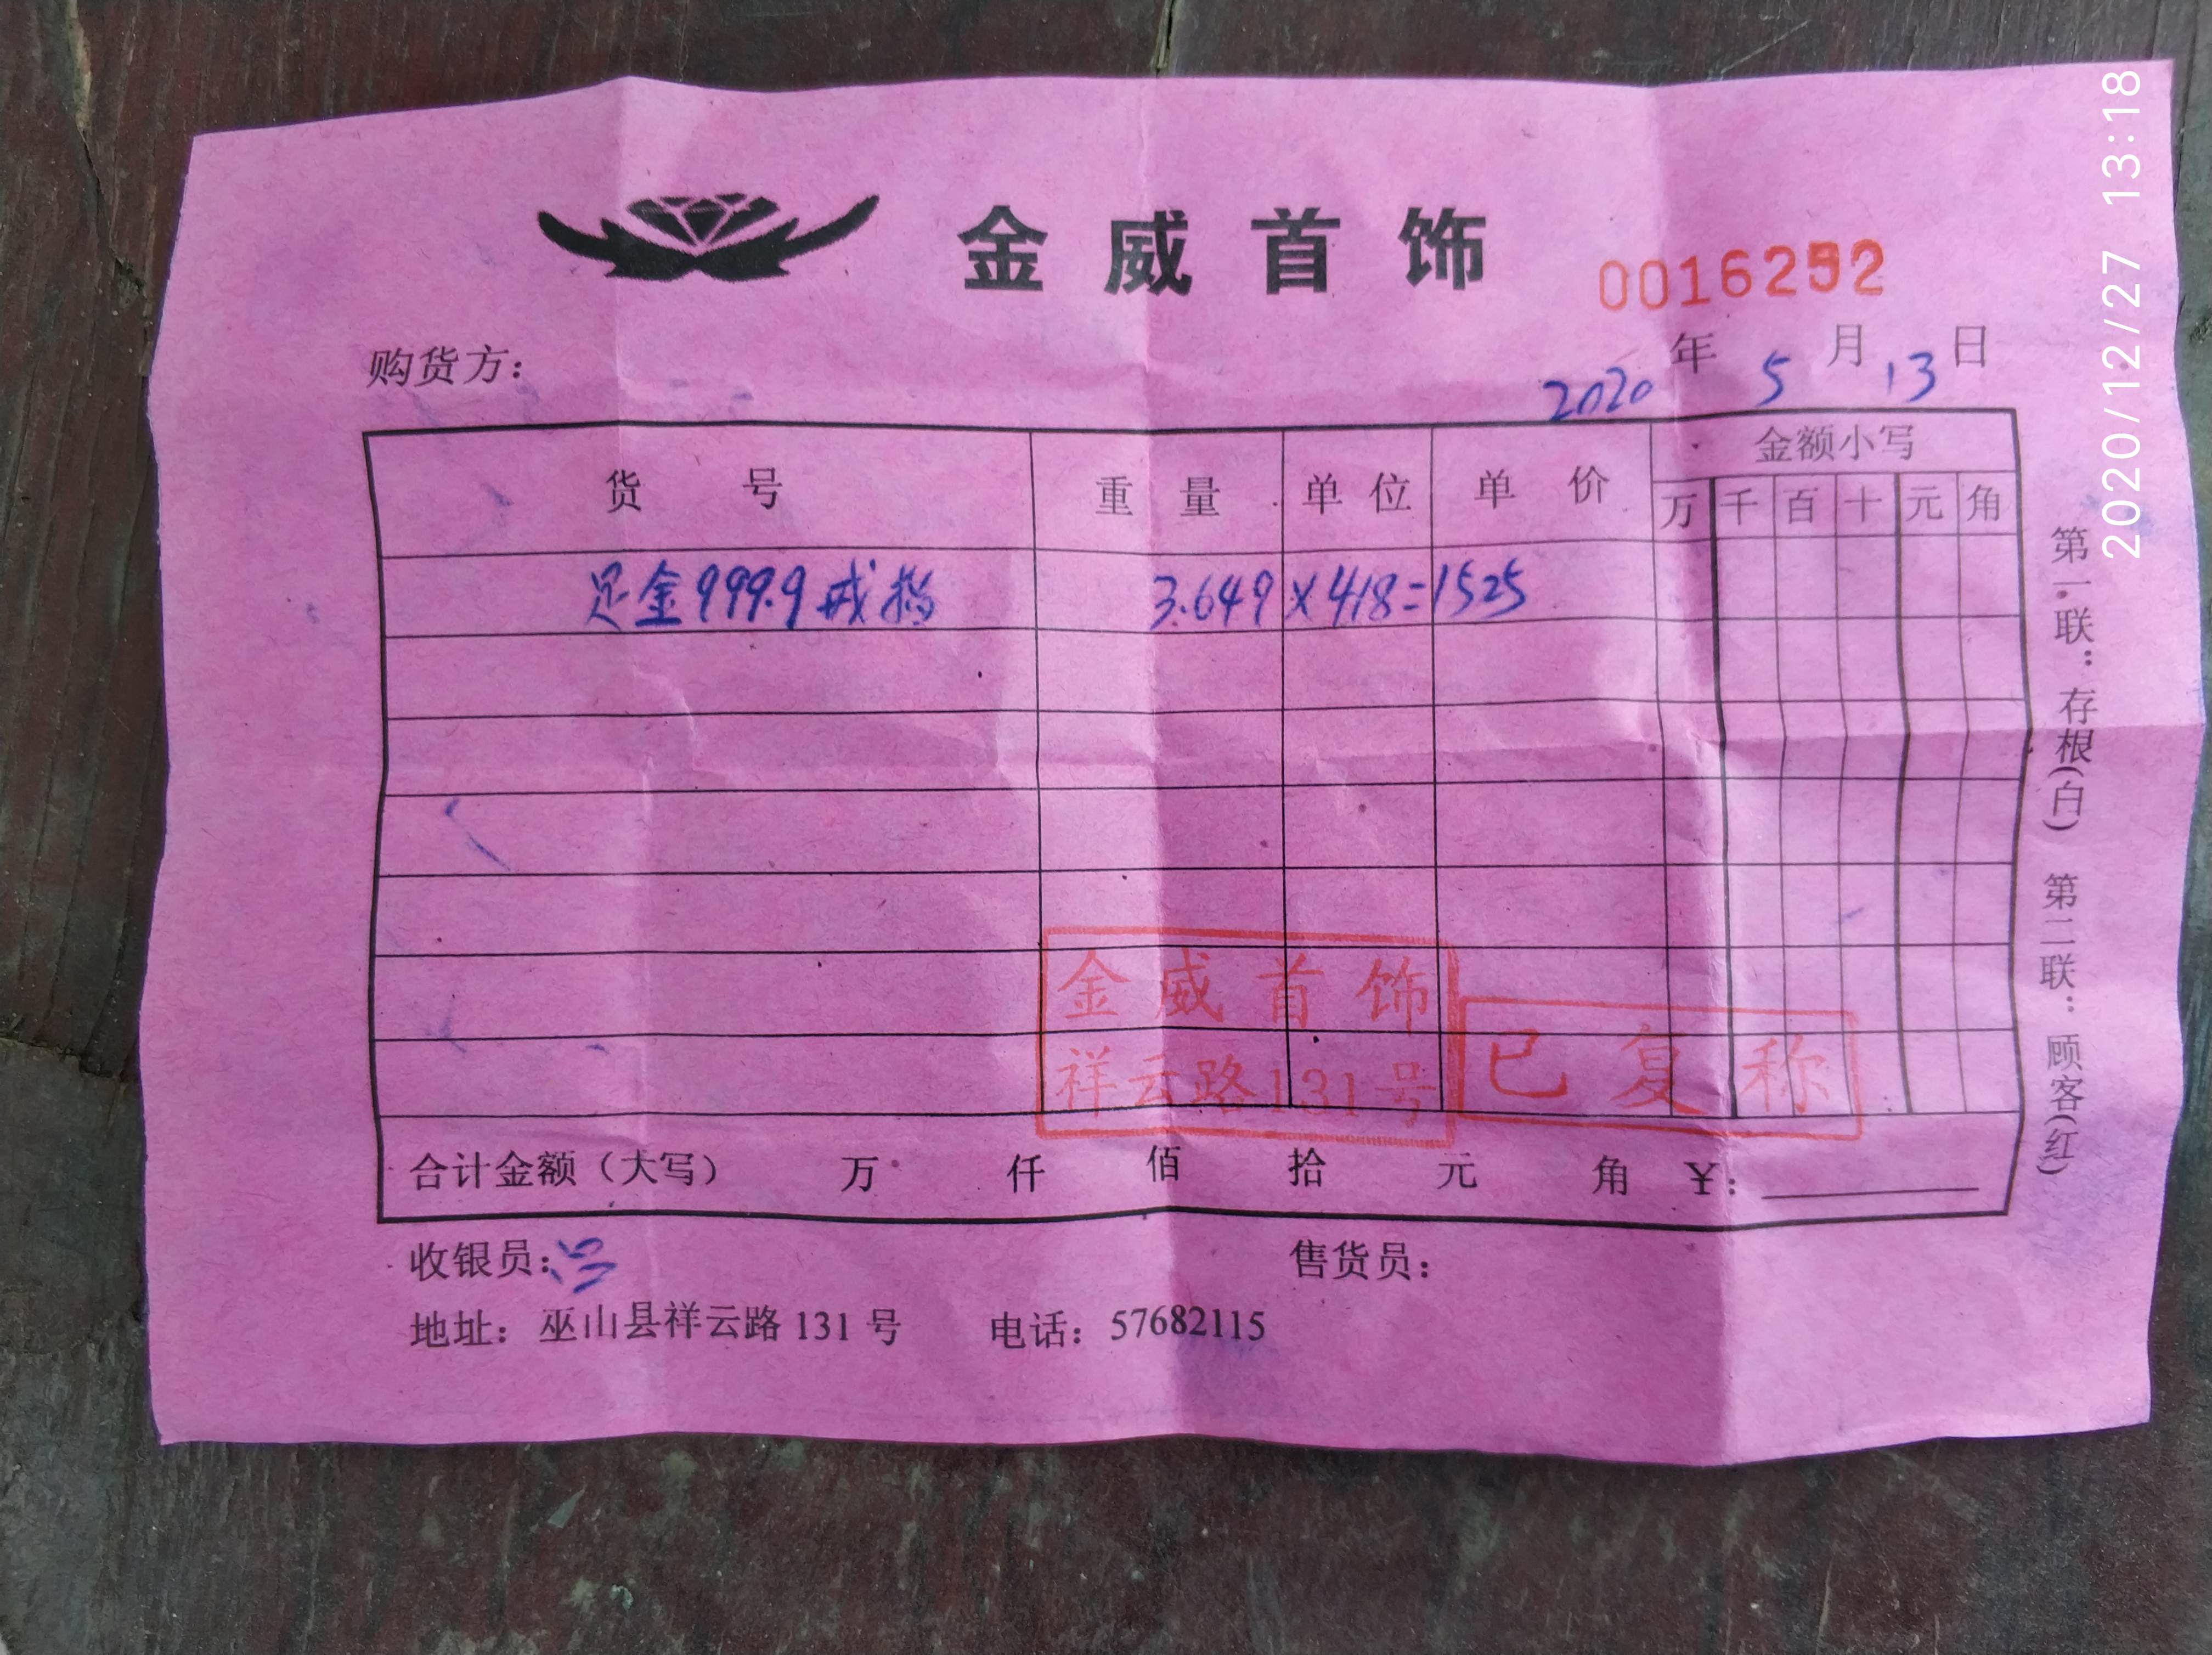 金威首饰
00162592
购货方：
2020年5月13日
货号 重量 单位 单价 金额小写
万 千 百 十 元 角
足金999.9戒指 3.649×418=1525
金威首饰
祥云路131号
已复称
合计金额（大写） 万 仟 佰 拾 元 角 ￥：
收银员：
售货员：
地址：巫山县祥云路131号 电话：57682115
第一联：存根(白) 第二联：顾客(红)
2020/12/27 13:18